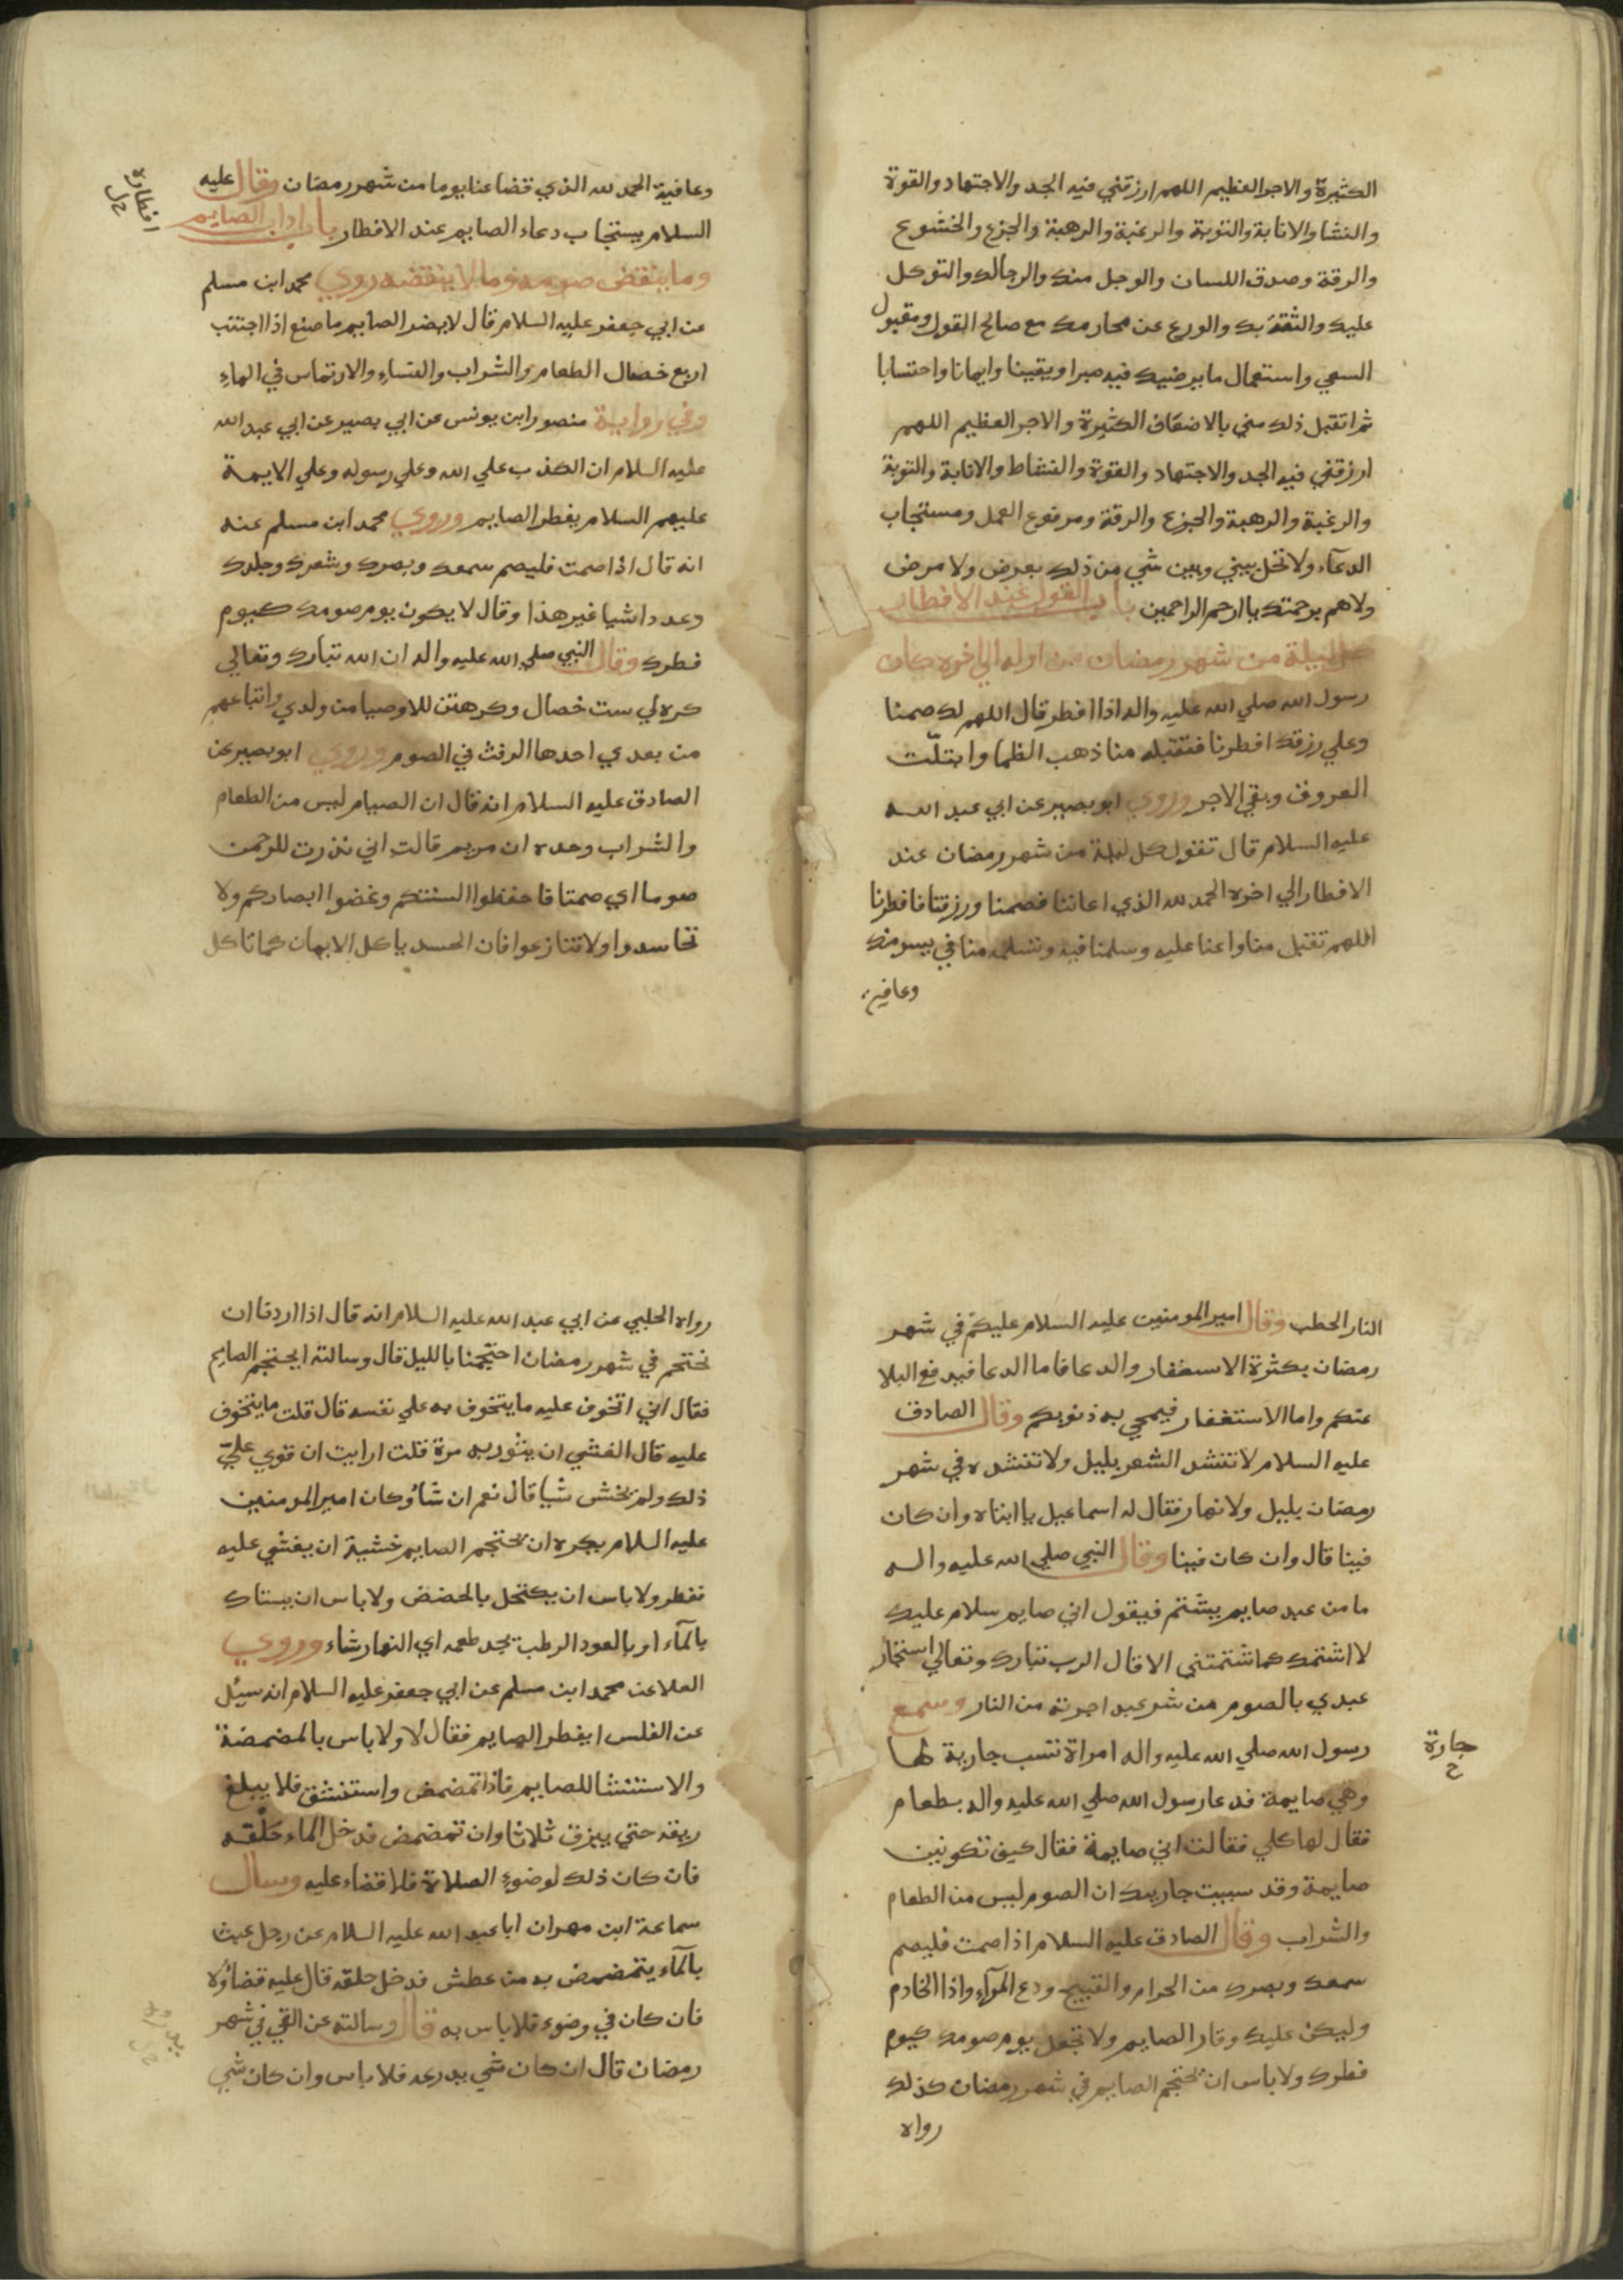 الكثيرة والاجر العظيم اللهم ارزقني فيه الجد والاجتهاد والقوة
والنشا والانابة والتوبة والرغبة والرهبة والجزع والخشوع
والرقة وصدق اللسان والوجل منك والرجا لك والتوكل
عليك والثقة بك والورع عن محارمك مع صالح القول ومقبول
السعي واستعمال ما يرضيك فيه صبرا ويقينا وايمانا واحتسابا
ثم اتقبل ذلك مني بالاضعاف الكثيرة والاجر العظيم اللهم
ارزقني فيه الجد والاجتهاد والقوة والنشاط والانابة والتوبة
والرغبة والرهبة والجزع والرقة ومرفوع العمل ومستجاب
الدعآء ولا تحل بيني وبين شي من ذلك بعرض ولا مرض
ولا هم برحمتك يا ارحم الراحمين باب القول عند الافطار
كل ليلة من شهر رمضان من اوله الي اخره كان
رسول الله صلي الله عليه واله اذا افطر قال اللهم لك صمنا
وعلي رزقك افطرنا فتقبله منا ذهب الظما وابتلّت
العروق وبقي الاجر وروي ابو بصير عن ابي عبد الله
عليه السلام قال تقول كل ليلة من شهر رمضان عند
الافطار الي اخره الحمد لله الذي اعاننا فصمنا ورزقنا فافطرنا
اللهم تقبل منا واعنا عليه وسلمنا فيه وتسلمه منا في يسر منك
وعافية
وعافية الحمد لله الذي قضا عنا يوما من شهر رمضان وقال عليه
السلام يستجاب دعاء الصايم عند الافطار باب اداب الصايم
افطاره
خ ل
وما ينقض صومه وما لا ينقضه روي محمد ابن مسلم
عن ابي جعفر عليه السلام قال لا يضر الصايم ما صنع اذا اجتنب
اربع خصال الطعام والشراب والنساء والارتماس في الماء
وفي رواية منصور ابن يونس عن ابي بصير عن ابي عبد الله
عليه السلام ان الكذب علي الله وعلي رسوله وعلي الايمة
عليهم السلام يفطر الصايم وروي محمد ابن مسلم عنه
انه قال اذا صمت فليصم سمعك وبصرك وشعرك وجلدك
وعدد اشيا غير هذا وقال لا يكون يوم صومك كيوم
فطرك وقال النبي صلي الله عليه واله ان الله تبارك وتعالي
كره لي ست خصال وكرهتن للاوصيا من ولدي واتباعهم
من بعدي احدها الرفث في الصوم وروي ابو بصير عن
الصادق عليه السلام انه قال ان الصيام ليس من الطعام
والشراب وحده ان مريم قالت اني نذرت للرحمن
صوما اي صمتا فاحفظوا السنتكم وغضوا ابصاركم ولا
تحاسدوا ولا تنازعوا فان الحسد ياكل الايمان كما تاكل
النار الحطب وقال امير المومنين عليه السلام عليكم في شهر
رمضان بكثرة الاستغفار والدعا فاما الدعا فيدفع البلا
عنكم واما الاستغفار فيمحي به ذنوبكم وقال الصادق
عليه السلام لا تنشد الشعر بليل ولا تنشده في شهر
رمضان بليل ولا نهار فقال له اسماعيل يا ابتاه وان كان
فينا قال وان كان فينا وقال النبي صلي الله عليه واله
ما من عبد صايم يشتم فيقول اني صايم سلام عليك
لا اشتمك كما شتمتني الا قال الرب تبارك وتعالي استجار
عبدي بالصوم من شر عبد اجرته من النار وسمع
رسول الله صلي الله عليه واله امراة تسب جارية لها
جارة
خ
وهي صايمة فدعا رسول الله صلي الله عليه واله بطعام
فقال لها كلي فقالت اني صايمة فقال كيف تكونين
صايمة وقد سببت جاريتك ان الصوم ليس من الطعام
والشراب وقال الصادق عليه السلام اذا صمت فليصم
سمعك وبصرك من الحرام والقبيح ودع المرآء واذا الخادم
وليكن عليك وقار الصايم ولا تجعل يوم صومك كيوم
فطرك ولا باس ان يحتجم الصايم في شهر رمضان كذلك
رواه
رواه الحلبي عن ابي عبد الله عليه السلام انه قال اذا اردنا ان
نحتجم في شهر رمضان احتجمنا بالليل قال وسالته ايحتجم الصايم
فقال اني اتخوف عليه ما يتخوف به علي نفسه قال قلت ما يتخوف
عليه قال الغشي ان يثور به مرة قلت ارايت ان قوي علي
ذلك ولم يخش شيا قال نعم ان شاؤ وكان امير المومنين
عليه السلام يكره ان يحتجم الصايم خشية ان يغشي عليه
فغطر ولا باس ان يكتحل بالحضض ولا باس ان يستاك
بالمآء او بالعود الرطب يجد طعمه اي النهار شاء وروي
العلا عن محمد ابن مسلم عن ابي جعفر عليه السلام انه سيل
عن القلس ايفطر الصايم فقال لا ولا باس بالمضمضة
والاستنشا للصايم فاذا تمضمض واستنشق فلا يبلغ
ريقه حتي يبزق ثلاثا وان تمضمض فدخل الماء حلقه
فان كان ذلك لوضوء الصلاة فلا قضاء عليه وسال
سماعة ابن مهران ابا عبد الله عليه السلام عن رجل عبث
بالمآء يتمضمض به من عطش فدخل حلقه قال عليه قضاؤه ولا
فان كان في وضوء فلا باس به قال وسالته عن القي في شهر
رمضان قال ان كان شي يدرعه فلا باس وان كان شي